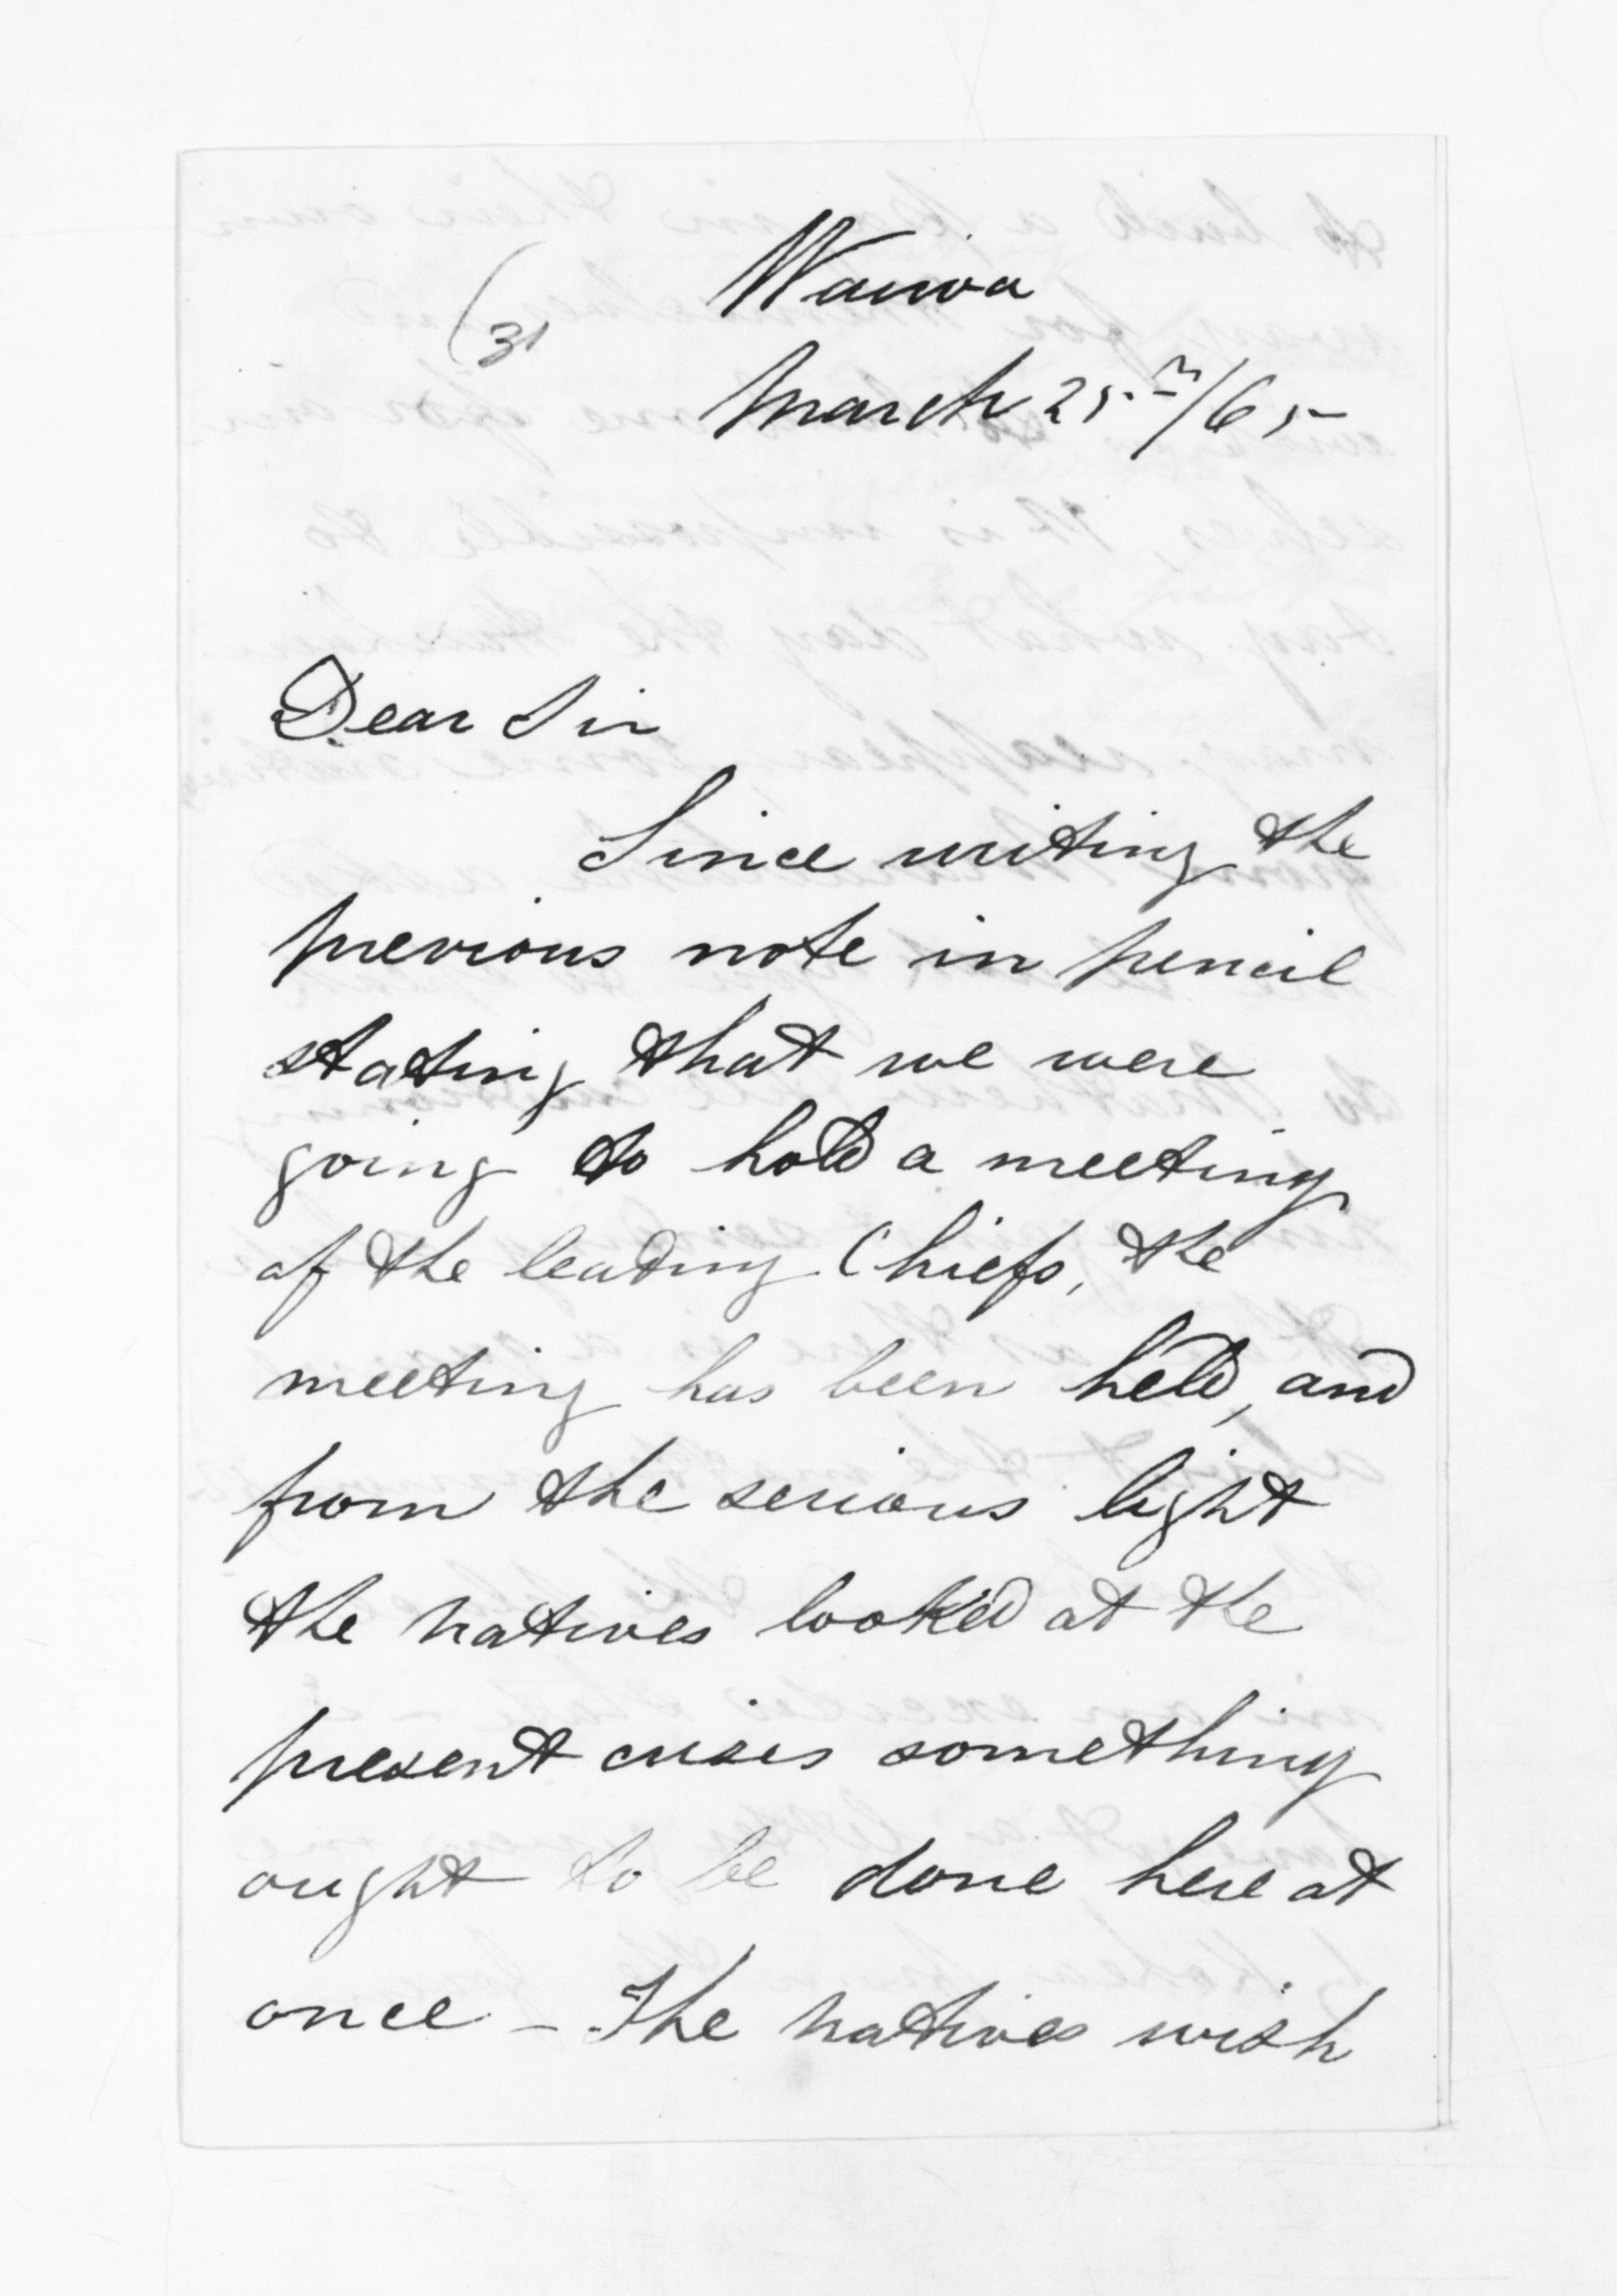 Wairoa
(31
March 25th/65
Dear Sir
Since writing the
previous note in pencil
stating that we were
going to hold a meeting
of the leading Chiefs, the
meeting has been held, and
from the serious light
the natives look'd at the
present crisis something
ought to be done here at
once - The natives wish